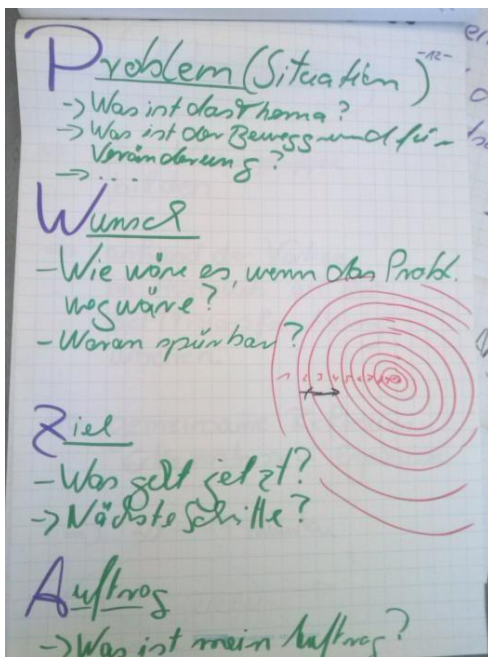 -12-
Problem (Situation)
-> Was ist das Thema?
-> Was ist der Beweggrund für
Veränderung?
-> ...
Wunsch
- Wie wäre es, wenn das Probl.
weg wäre?
- Woran spürbar?
1 2 3 4 5 6 7
Ziel
- Was geht jetzt?
-> Nächste Schitte?
Auftrag
-> Was ist mein Auftrag?